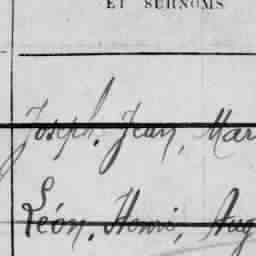 ET SURNOMS
Joseph, Jean, Mar
Léon, Henri, Aug